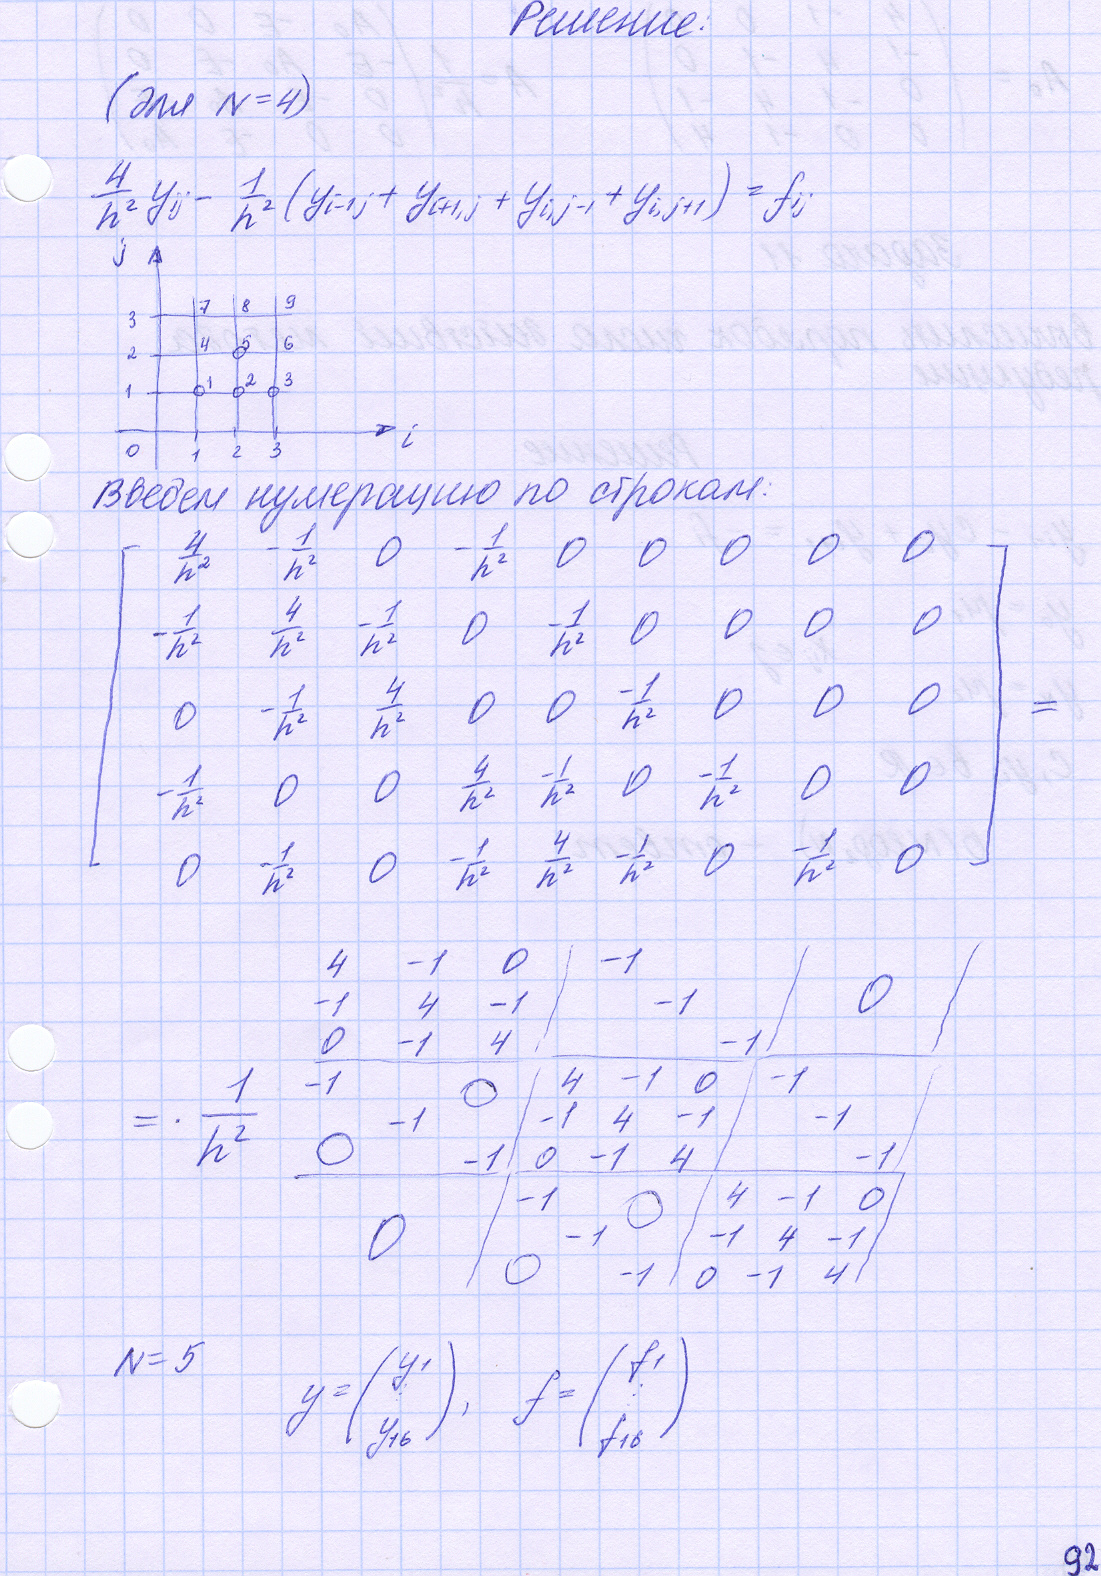 Решение:
(для N=4)
4/h² yij - 1/h² (yi-1j + yi+1,j + yi,j-1 + yi,j+1) = fij
j
3 7 8 9
2 4 5 6
1 1 2 3
0 1 2 3 i
Введем нумерацию по строкам:
4/h² -1/h² 0 -1/h² 0 0 0 0 0
-1/h² 4/h² -1/h² 0 -1/h² 0 0 0 0
0 -1/h² 4/h² 0 0 -1/h² 0 0 0 =
-1/h² 0 0 4/h² -1/h² 0 -1/h² 0 0
0 -1/h² 0 -1/h² 4/h² -1/h² 0 -1/h² 0
4 -1 0 | -1 |
-1 4 -1 | -1 | 0
0 -1 4 | -1 |
= · 1/h²
-1 0 | 4 -1 0 | -1
-1 | -1 4 -1 | -1
0 -1 | 0 -1 4 | -1
| -1 0 | 4 -1 0
0 | -1 | -1 4 -1
| 0 -1 | 0 -1 4
N=5 y = (y1 ⋮ y16), f = (f1 ⋮ f16)
92